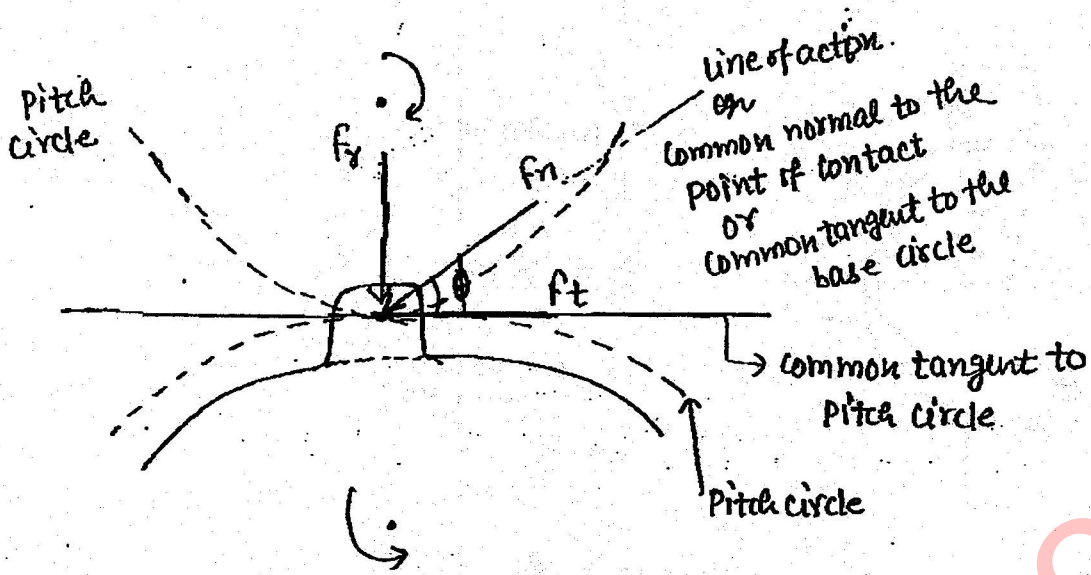 Pitch
circle
Fr
Fn
line of action.
or
Common normal to the
point of contact
or
Common tangent to the
base circle
ϕ
Ft
Common tangent to
Pitch circle
Pitch circle